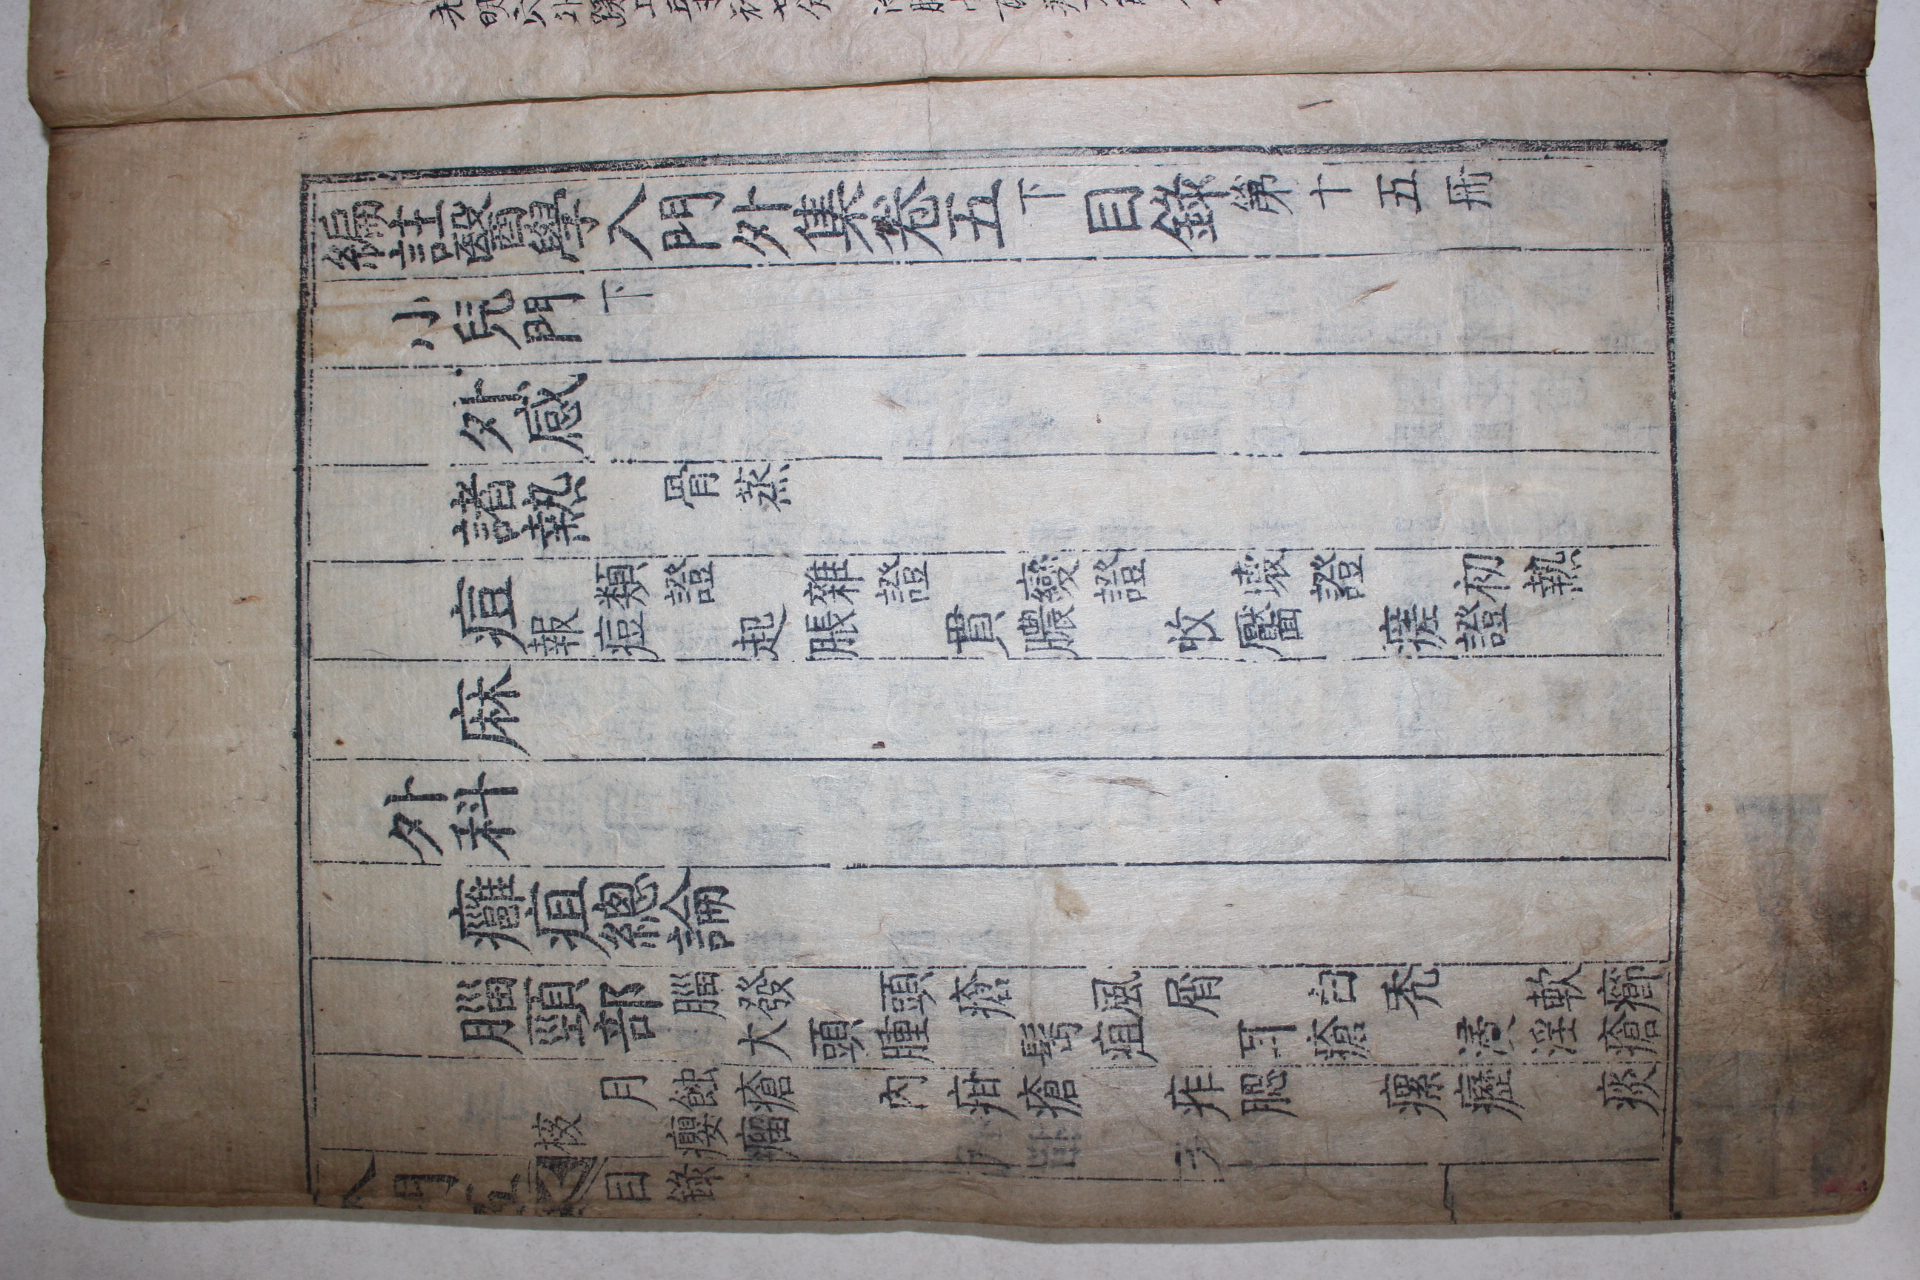 編註醫學入門外集卷五下目錄第十五冊
小兒門下
外感
諸熱 骨蒸
痘 類證 雜證 變證 壞證 初熱
報痘 起脹 貫膿 收靨 瘥證
麻
外科
癰疽總論
腦頸部 腦發 頭瘡 風屑 白禿 軟癤
大頭腫 髩疽 耳瘡 浸淫瘡
月蝕瘡 內疳瘡 痄腮 瘰癧 痰
核 癭瘤
入門五 目錄